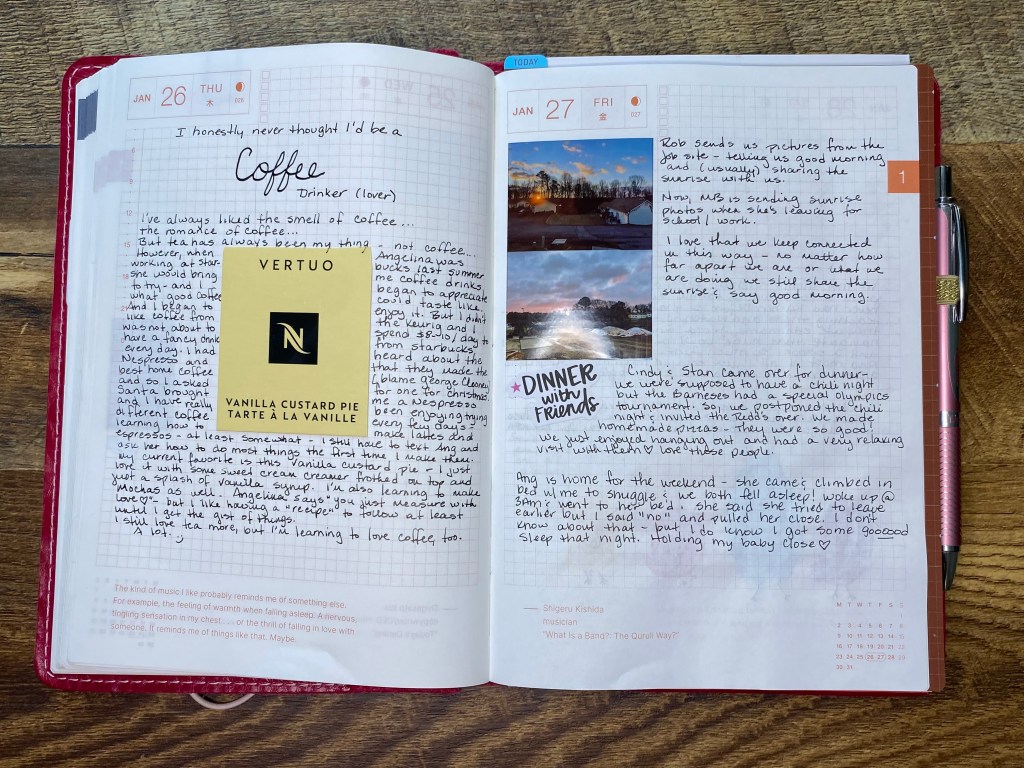 JAN 26 THU
木 026
I honestly never thought I'd be a
Coffee
Drinker (lover)
I've always liked the smell of coffee...
the romance of coffee...
But tea has always been my thing - not coffee...
However, when Angelina was
working at Star- bucks last summer
she would bring me coffee drinks
to try - and I began to appreciate
what good coffee could taste like.
And I began to enjoy it. But I didn't
like coffee from the Keurig and I
was not about to spend $8-10/day to
have a fancy drink from Starbucks
every day. I had heard about the
Nespresso and that they made the
best home coffee (blame George Clooney)
and so I asked for one for Christmas.
Santa brought me a Nespresso
and I have really been enjoying trying
different coffee every few days -
learning how to make lattes and
espressos - at least somewhat - I still have to text Ang and
ask her how to do most things the first time I make them.
My current favorite is this Vanilla custard pie - I just
love it with some sweet cream creamer frothed on top and
just a splash of vanilla syrup. I'm also learning to make
mochas as well. Angelina says "you just measure with
love♡" - but I like having a "recipe" to follow at least
until I get the gist of things.
I still love tea more, but I'm learning to love coffee, too.
A lot. :)
VERTUO
N
VANILLA CUSTARD PIE
TARTE À LA VANILLE
The kind of music I like probably reminds me of something else.
For example, the feeling of warmth when falling asleep. A nervous,
tingling sensation in my chest . . . . or the thrill of falling in love with
someone. It reminds me of things like that. Maybe.
TODAY
JAN 27 FRI
金 027
1
Rob sends us pictures from the
job site - telling us good morning
and (usually) sharing the
sunrise with us.
Now, MB is sending sunrise
photos when she's leaving for
school/work.
I love that we keep connected
in this way - no matter how
far apart we are or what we
are doing we still share the
sunrise & say good morning.
★ DINNER
with
FRIENDS
Cindy & Stan came over for dinner-
we were supposed to have a chili night
but the Barneses had a special olympics
tournament. So, we postponed the chili
night & invited the Redds over. We made
homemade pizzas - They were so good!
We just enjoyed hanging out and had a very relaxing
visit with them ♡ love these people.
Ang is home for the weekend - she came & climbed in
bed w/me to snuggle & we both fell asleep! Woke up @
3AM & went to her bed. She said she tried to leave
earlier but I said "no" and pulled her close. I don't
know about that - but I do know I got some gooood
sleep that night. Holding my baby close ♡
— Shigeru Kishida
musician
"What Is a Band?: The Quruli Way?"
M T W T F S S
1
2 3 4 5 6 7 8
9 10 11 12 13 14 15
16 17 18 19 20 21 22
23 24 25 26 27 28 29
30 31